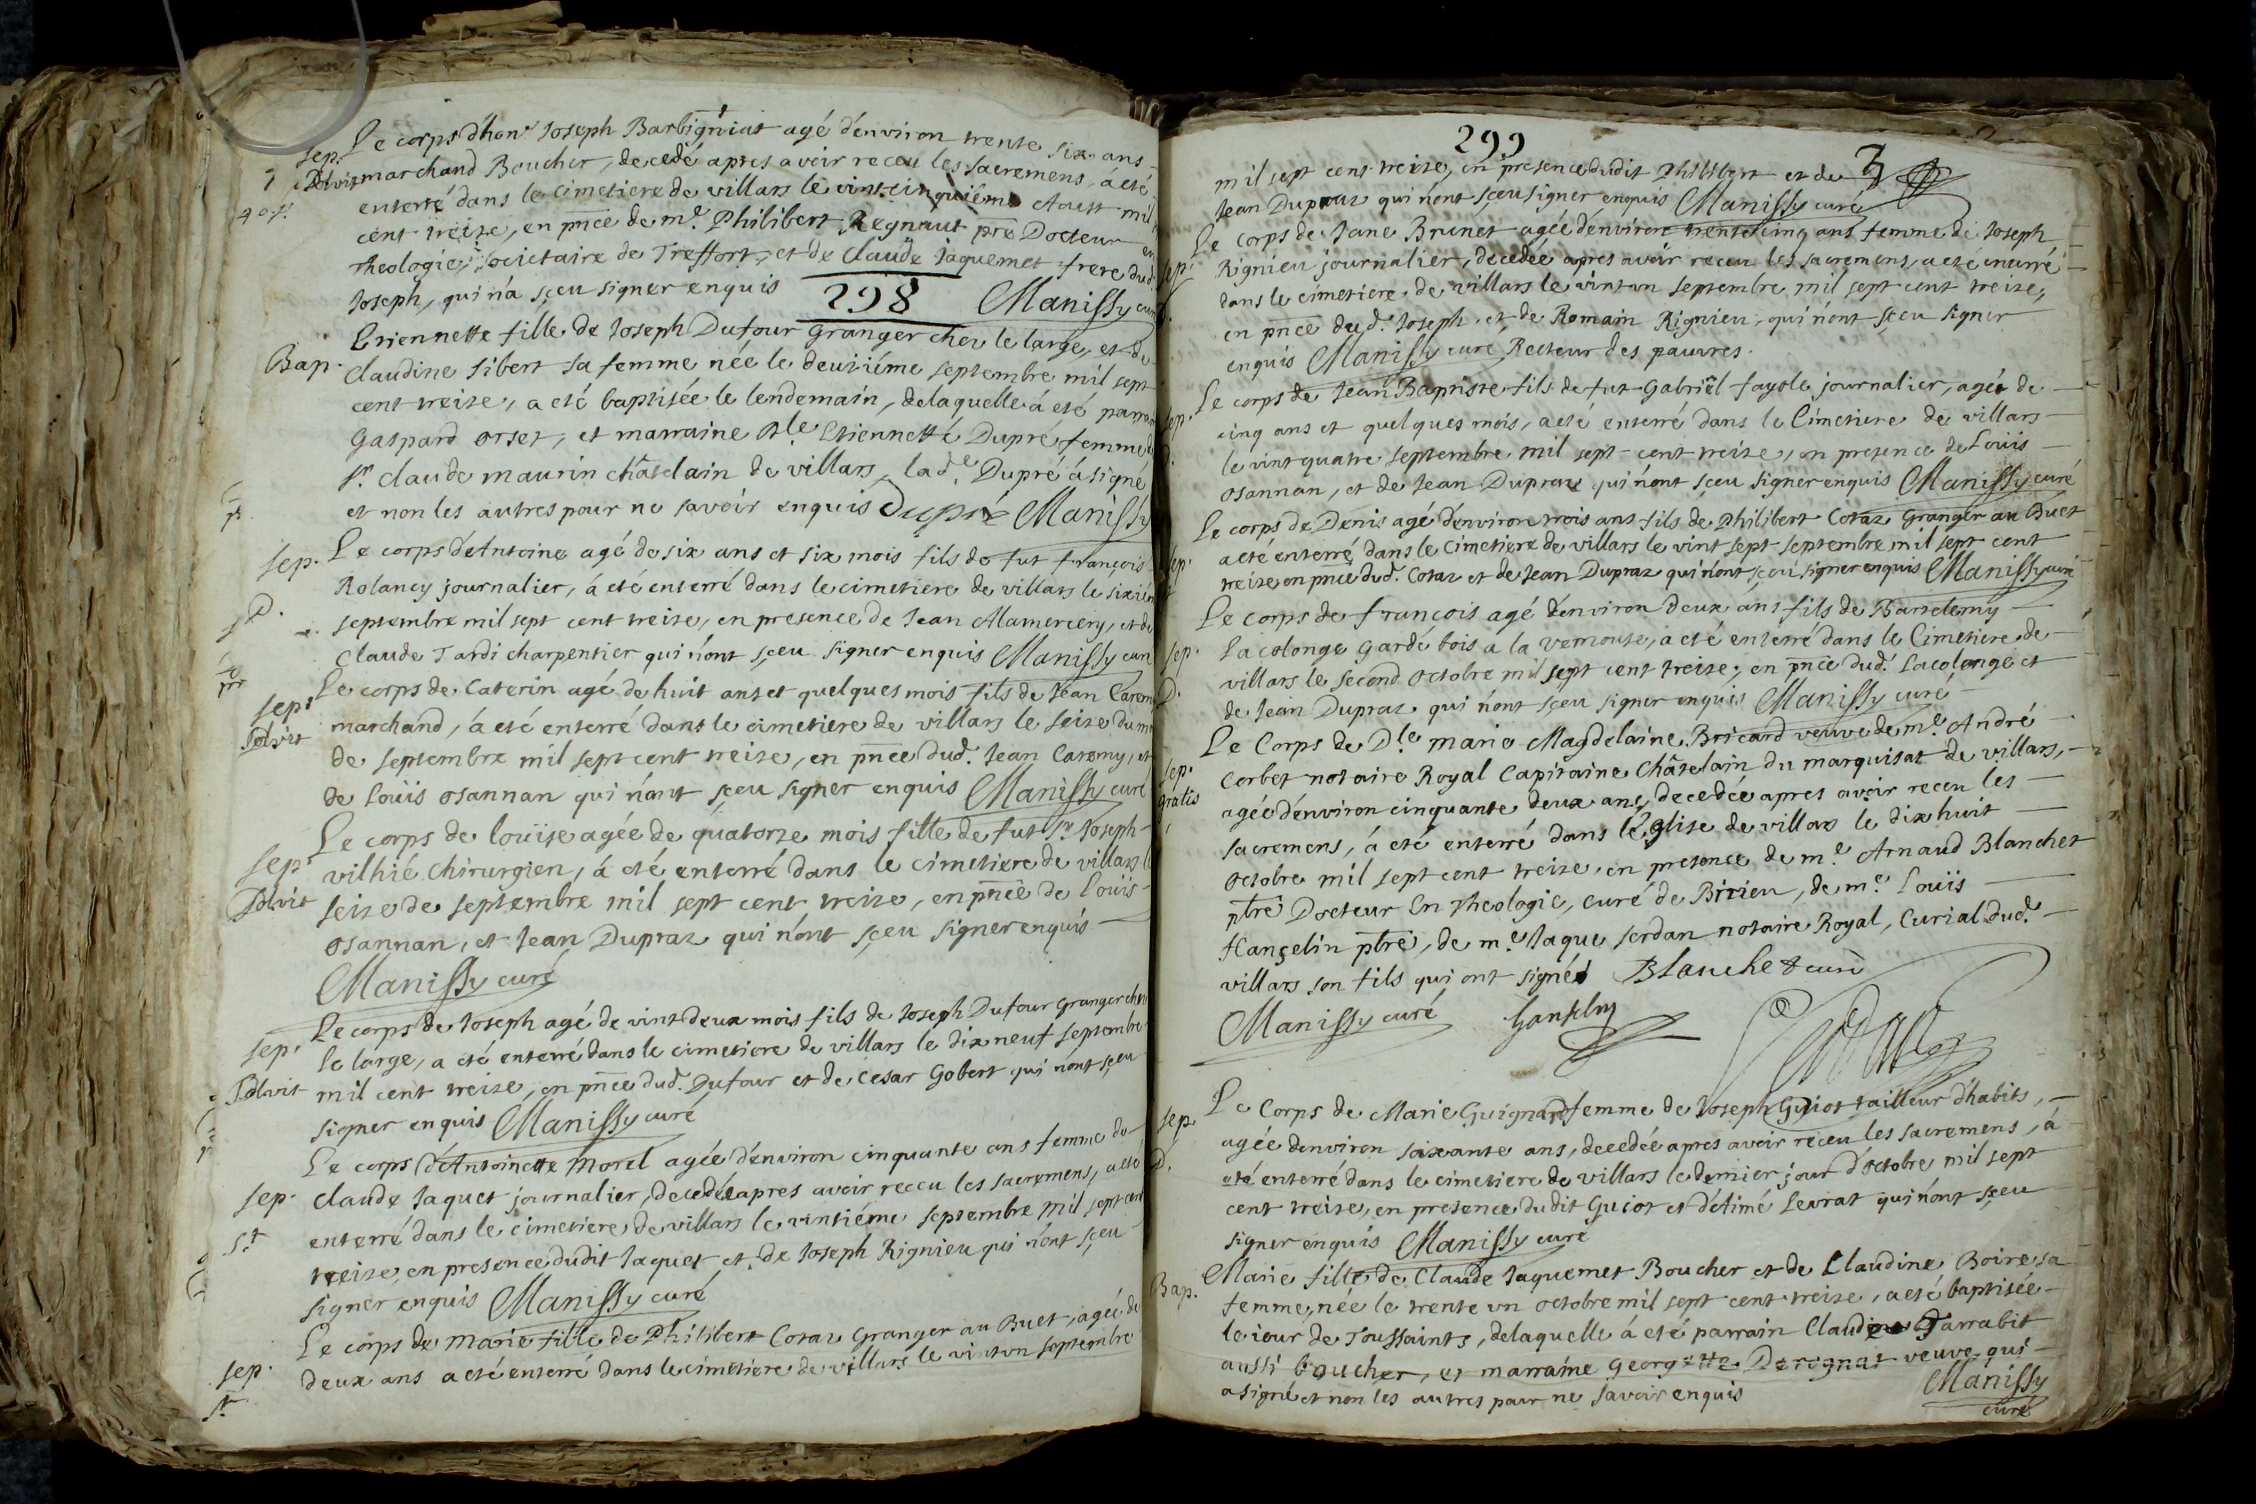 Le corps d'hon. Joseph Barbigniat agé d'environ trente six ans
sep. solvit marchand Boucher, decedé apres avoir receu les sacremens, á eté
enterré dans le cimetiere de villars le vint cinquiéme Aoust mil
cent treize, en pnce de me. Philibert Regnaut pre Docteur en
Theologie, societaire de Treffort, et de Claude Jaquemet frere dud.
Joseph, qui n'a sçeu signer enquis Manissy curé
298
Bap. Etiennette fille de Joseph Dufour Granger chez le large, et de
Claudine Sibert sa femme née le deuziéme septembre mil sept
cent treize, a eté baptisée le lendemain, de laquelle á eté parrain
Gaspard orset, et marraine Dle Etiennette Dupré femme de
sr. Claude maurin châtelain de villars, lade. Dupré á signé
et non les autres pour ne savoir enquis Dupré Manissy
sep. Le corps d'Antoine agé de six ans et six mois fils de fut françois
Rolancy journalier, á eté enterré dans le cimetiere de villars le sixiém
septembre mil sept cent treize, en presence de Jean Mamercery, et de
Claude Tardi charpentier qui n'ont sçeu signer enquis Manissy curé
sep. Le corps de Caterin agé de huit ans et quelques mois fils de Jean Carem
solvit marchand, á eté enterré dans le cimetiere de villars le seize du m
de septembre mil sept cent treize, en pnce dud. Jean Caremy, et
de Loüis osannan qui n'ont sçeu signer enquis Manissy curé
Le corps de loüise agée de quatorze mois fille de fut sr Joseph
sep. vilhié chirurgien, á eté enterré dans le cimetiere de villars l
solvit seize de septembre mil sept cent treize, en pnce de Loüis
osannan, et Jean Dupraz qui n'ont sçeu signer enquis
Manissy curé
sep. Le corps de Joseph agé de vint deux mois fils de Joseph Dufour granger chez
le large, a eté enterré dans le cimetiere de villars le dix neuf septembre
solvit mil cent treize, en pnce dud. Dufour et de Cesar Gobert qui n'ont sçeu
signer enquis Manissy curé
Le corps d'Antoinette Morel agée d'environ cinquante ans femme de
sep. Claude Jaquet journalier, decedée apres avoir receu les sacremens, a eté
enterré dans le cimetiere de villars le vintiéme septembre mil sept cent
treize, en presence dudit Jaquet et de Joseph Rignieu qui n'ont sçeu
signer enquis Manissy curé
sep. Le corps de Marie fille de Philibert Cotaz Granger au Buet, agée de
deux ans a eté enterré dans le cimetiere de villars le vint un septembre
299
mil sept cent treize, en presence dudit Philibert et de
Jean Dupraz qui n'ont sçeu signer enquis Manissy curé
sep. Le corps de Jane Brunet agée d'environ trente cinq ans femme de Joseph
Rignieu journalier, decedée apres avoir receu les sacremens, a eté enterré
dans le cimetiere de villars le vint un septembre mil sept cent treize,
en pnce dud. Joseph, et de Romain Rignieu, qui n'ont sçeu signer
enquis Manissy curé Recteur des pauvres.
sep. Le corps de Jean Baptiste fils de fut Gabriël fayole journalier, agé de
cinq ans et quelques mois, a eté enterré dans le Cimetiere de villars
le vint quatre septembre mil sept cent treize, en presence de Loüis
osannan, et de Jean Dupraz qui n'ont sçeu signer enquis Manissy curé
sep. Le corps de Denis agé d'environ trois ans fils de Philibert Cotaz Granger au Buet
a eté enterré dans le cimetiere de villars le vint sept septembre mil sept cent
treize en pnce dud. Cotaz et de Jean Dupraz qui n'ont sçeu signer enquis Manissy curé
Le corps de françois agé d'environ deux ans fils de Bartelemy
sep. Lacolonge garde bois a la vernouse, a eté enterré dans le Cimetiere de
D. villars le second octobre mil sept cent treize, en pnce dud. Lacolonge et
de Jean Dupraz qui n'ont sçeu signer enquis Manissy curé
Le Corps de Dle marie Magdelaine Bricard veuve de me. André
sep. Corbet notaire Royal Capitaine Châtelain du marquisat de villars,
gratis agée d'environ cinquante deux ans, decedée apres avoir receu les
sacremens, á eté enterré dans l'église de villars le dix huit
octobre mil sept cent treize, en presence de me. Arnaud Blanchet
ptre Docteur En Theologie, curé de Birieu, de me. Loüis
Hançelin ptre, de me. Jaque Jordan notaire Royal, Curial dud.
villars son fils qui ont signé Blanchet curé
Manissy curé
sep. Le Corps de Marie Guignard femme de Joseph Guiot tailleur d'habits,
agée d'environ soixante ans, decedée apres avoir receu les sacremens, á
D. eté enterré dans le cimetiere de villars le dernier jour d'octobre mil sept
cent treize, en presence dudit Guiot et d'étimé Levrat qui n'ont sçeu
signer enquis Manissy curé
Bap. Marie fille de Claude Jaquemet Boucher et de Claudine Boire sa
femme, née le trente un octobre mil sept cent treize, a eté baptisée
le jour de Toussaints, de laquelle á eté parrain Claude Jarrabit
aussi boucher, et marraine Georgette veuve qui
a signé et non les autres pour ne savoir enquis Manissy
curé